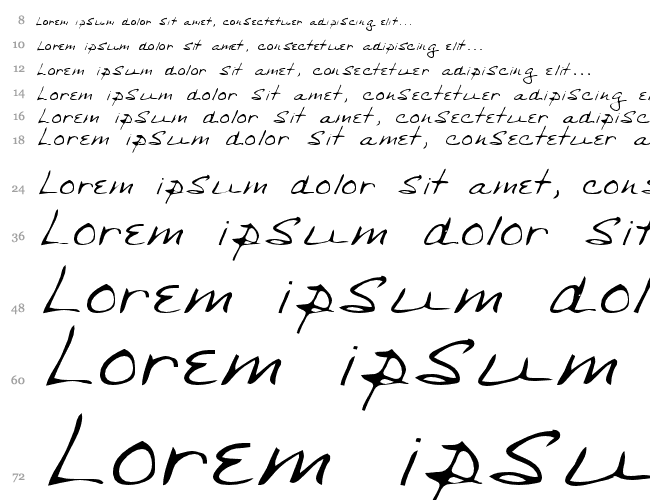 8 Lorem ipsum dolor sit amet, consectetuer adipiscing elit...
10 Lorem ipsum dolor sit amet, consectetuer adipiscing elit...
12 Lorem ipsum dolor sit amet, consectetuer adipiscing elit...
14 Lorem ipsum dolor sit amet, consectetuer adipiscing e
16 Lorem ipsum dolor sit amet, consectetuer adipisc
18 Lorem ipsum dolor sit amet, consectetuer a
24 Lorem ipsum dolor sit amet, cons
36 Lorem ipsum dolor sit
48 Lorem ipsum dol
60 Lorem ipsum
72 Lorem ipsu